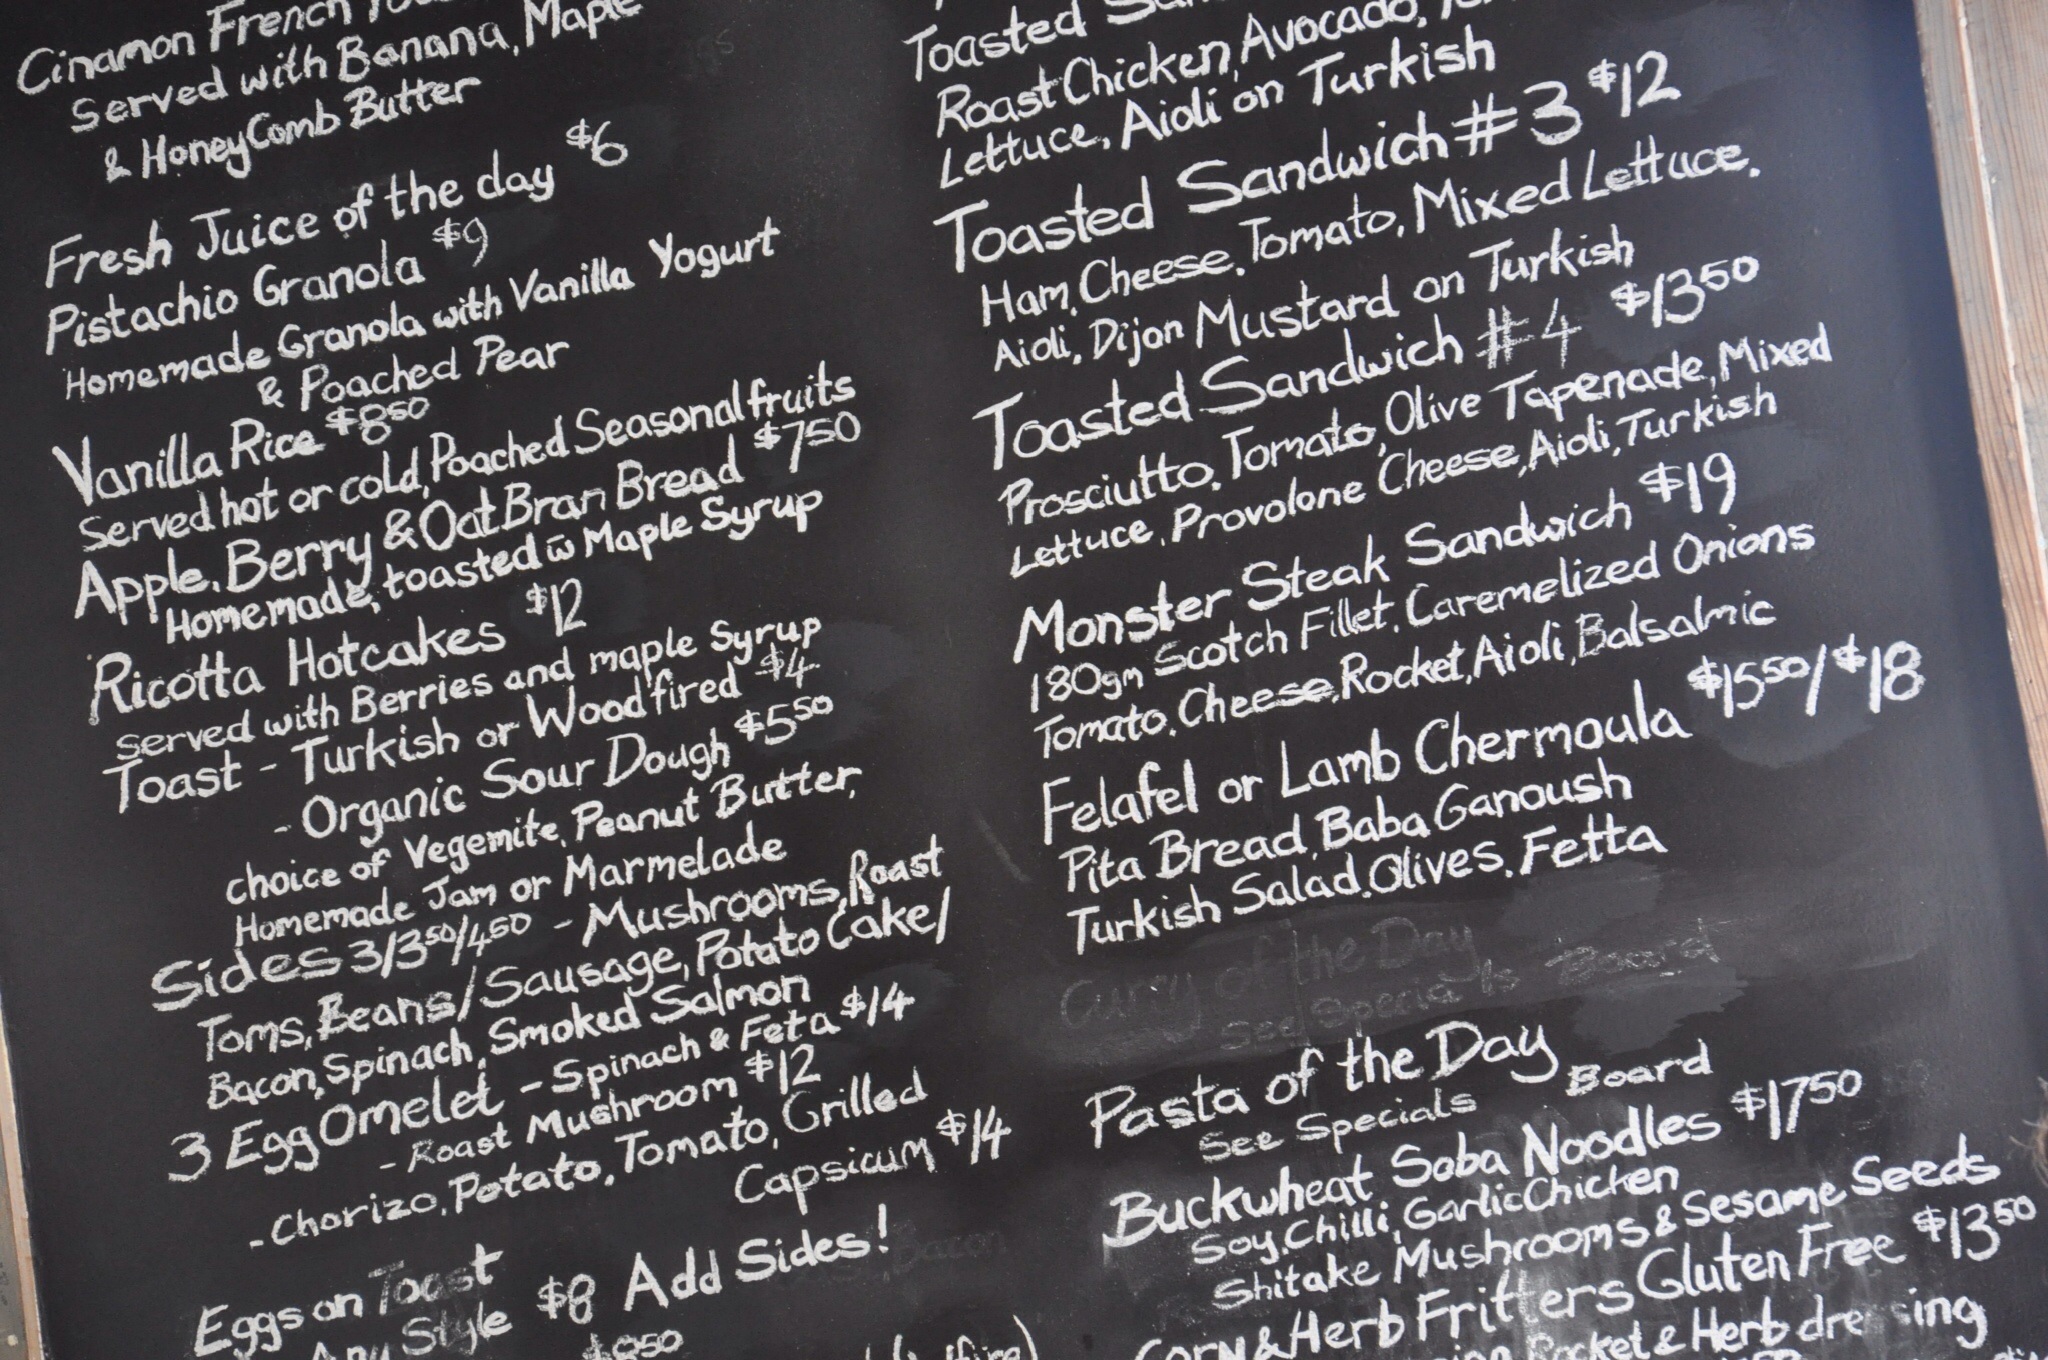 Cinamon French
Served with Banana, Maple
& HoneyComb Butter
Fresh Juice of the day $6
Pistachio Granola $9
Homemade Granola with Vanilla Yogurt
& Poached Pear
Vanilla Rice $8.50
Served hot or cold, Poached Seasonal fruits
Apple, Berry & Oat Bran Bread $7.50
Homemade, toasted w̄ Maple Syrup
Ricotta Hotcakes $12
Served with Berries and maple Syrup
Toast - Turkish or Wood fired $4
- Organic Sour Dough $5.50
choice of Vegemite, Peanut Butter,
Homemade Jam or Marmelade
Sides 3/3.50/4.50 - Mushrooms, Roast
Toms, Beans/Sausage, Potato Cake/
Bacon, Spinach, Smoked Salmon
3 Egg Omelet - Spinach & Feta $14
- Roast Mushroom $12
- Chorizo, Potato, Tomato, Grilled
Capsicum $14
Eggs on Toast
Any Style $8 Add Sides!
Toasted
Roast Chicken, Avocado,
Lettuce, Aioli on Turkish
Toasted Sandwich #3 $12
Ham, Cheese, Tomato, Mixed Lettuce.
Aioli, Dijon Mustard on Turkish
Toasted Sandwich #4 $13.50
Prosciutto, Tomato, Olive Tapenade, Mixed
Lettuce, Provolone Cheese, Aioli, Turkish
Monster Steak Sandwich $19
180gm Scotch Fillet, Caremelized Onions
Tomato, Cheese, Rocket, Aioli, Balsalmic
Felafel or Lamb Chermoula $15.50/$18
Pita Bread, Baba Ganoush
Turkish Salad, Olives, Fetta
Curry of the Day
See Specials Board
Pasta of the Day
See Specials Board
Buckwheat Soba Noodles $17.50
Soy, Chilli, Garlic Chicken
Shitake Mushrooms & Sesame Seeds
Corn & Herb Fritters Gluten Free $13.50
Rocket & Herb dressing